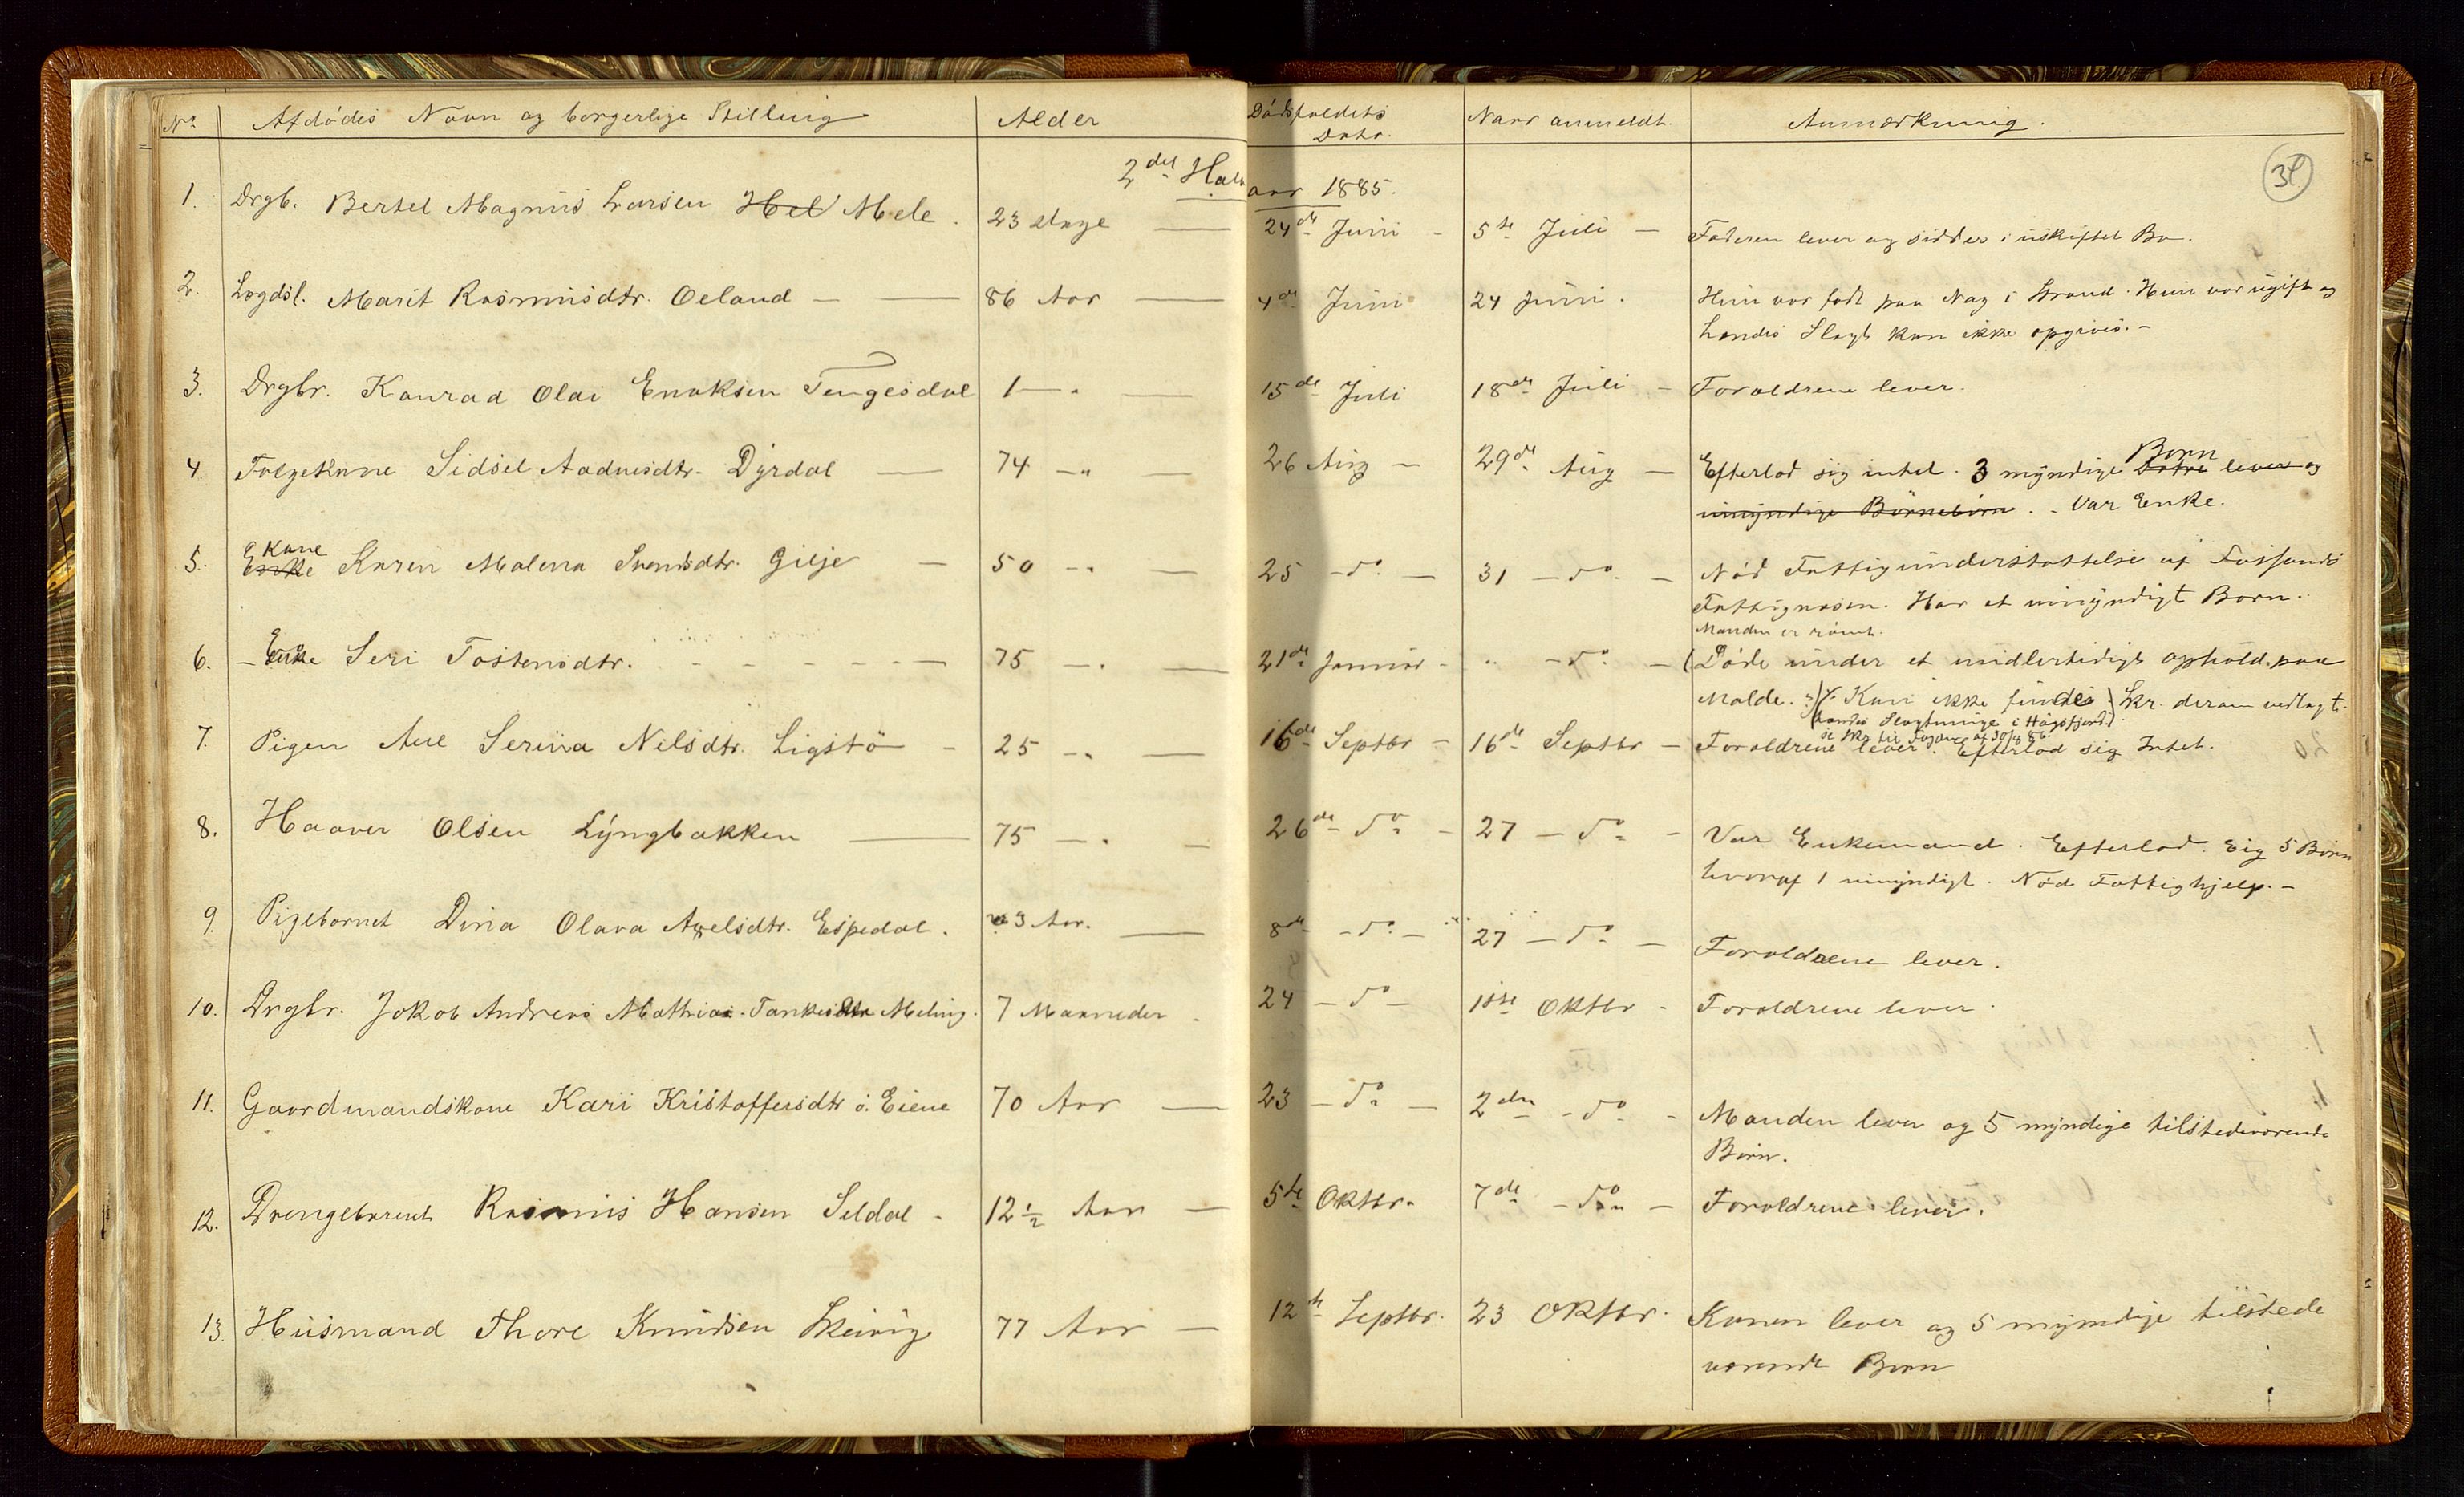 No. Afdødes Navn og borgerlige Stilling Alder Dødsfaldets Dato. Naar anmeldt. Anmærkning.
34
2det Halvaar 1885.
1. Drgb. Bertel Magnus Larsen Hel Mele. 23 Dage — 24de Juni - 5te Juli — Faderen lever og sidder i uskiftet Bo.
2. Lægdsl. Marit Rasmusdtr. Oeland — — 86 Aar — 4de Juni 24 Juni. Hun var født paa Nag i Strand. Hun var ugift og
hendes Slægt kan ikke opgives. -
3. Drgbr. Konrad Olai Enoksen Tengesdal 1 — " — 15de Juli 18de Juli - Forældrene lever.
4. Følgekone Sidsel Aadnesdtr. Dyrdal — 74 — " — 26 Aug - 29de Aug — Efterlod sig intet. 3 myndige Børn Døtre lever og
umyndige Børnebørn. - Var Enke.
5. Kone Enke Karen Malena Svendsdtr. Gilje — 50 - " — 25 - do. — 31 - do. — Nød Fattigunderstøttelse af Fossands
Fattigvæsen. Har et umyndigt Barn.
Manden er rømt.
6. - Enke Seri Tostensdtr. - - - - - — 75 — " — 21de Januar - " - do — (Døde under et midlertidigt ophold paa
Molde. Kan ikke findes Skr. derom vedlagt.
(hendes Slægtninge i Høgsfjord)
se Skr. til Fogden af 30/3 86.
7. Pigen Ane Serina Nilsdtr. Ligstø - 25 - " — 16de Septbr - 16de Septbr — Forældrene lever. Efterlod sig Intet.
8. Haaver Olsen Lyngbakken — 75 — " — 26de - do - 27 - do - Var Enkemand. Efterlod sig 5 Børn
hvoraf 1 umyndigt. Nød Fattighjelp. -
9. Pigebarnet Dina Olava Axelsdtr. Espedal. 3 Aar. — 8de - do - 27 - do — Forældrene lever.
10. Drgbr. Jakob Andreas Mathias Meling. 7 Maaneder - 24 - do - 1ste Oktbr - Forældrene lever.
11. Gaardmandskone Kari Kristoffersdtr ø. Eiene 70 Aar — 23 - do — 2den - do - Manden lever og 5 myndige tilstedeværende
Børn.
12. Drengebarnet Rasmus Hansen Seldal - 12½ Aar — 5te Oktbr. 7de - do — Forældrene lever.
13. Husmand Thore Knudsen Skeivig 77 Aar — 12te Septbr. 23 Oktbr. Konen lever og 5 myndige tilstede
værende Børn